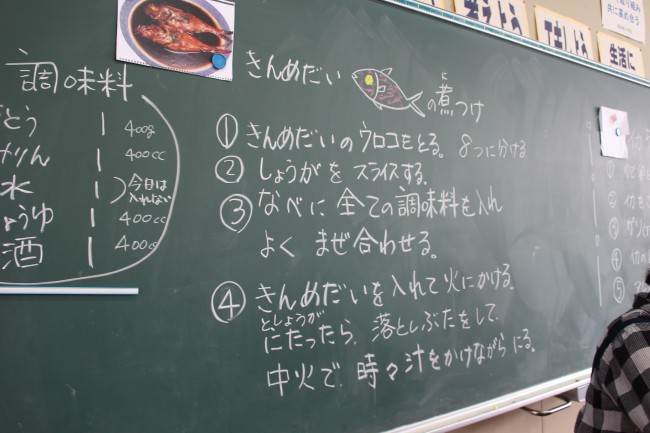 調味料
とう 1 400g
みりん 1 400cc
水 1 今日は入れない
しょうゆ 1 400cc
酒 1 400cc
きんめだいの煮つけ
に
① きんめだいのウロコをとる。 8つに分ける
② しょうがをスライスする。
③ なべに全ての調味料を入れ
よくまぜ合わせる。
④ きんめだいを入れて火にかける。
としょうが
にたったら、落としぶたをして、
中火で、時々汁をかけながらにる。
生活に
共に高め合う
④
⑤